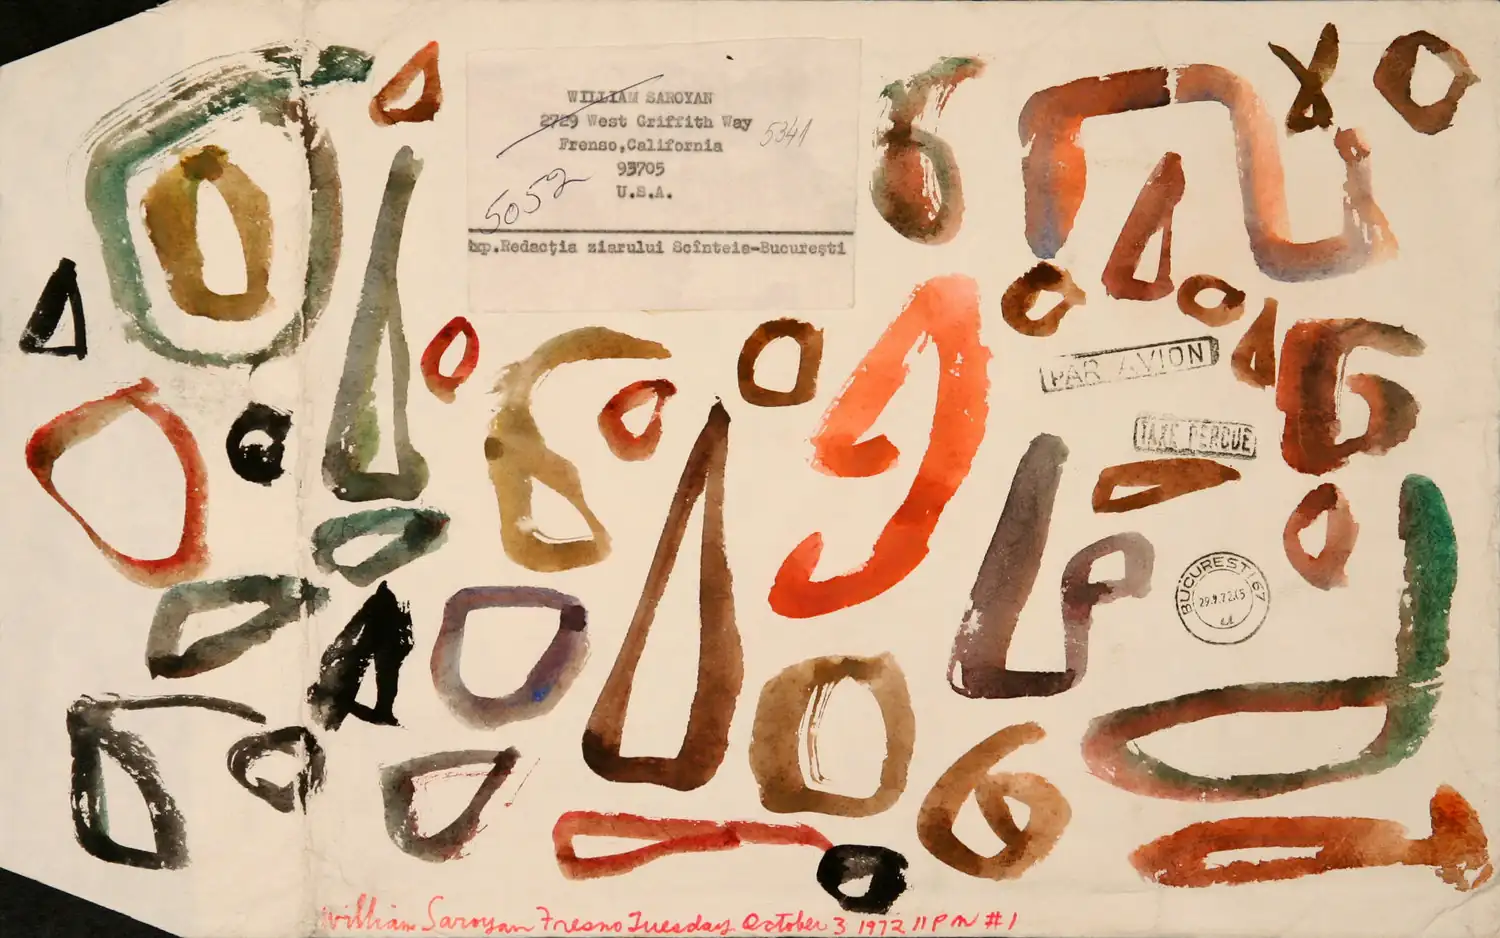 WILLIAM SAROYAN
2729 West Griffith Way
5341
Frenso,California
93705
U.S.A.
5052
Exp.Redacția ziarului Scînteia-București
PAR AVION
TAXE PERCUE
BUCUREȘTI 67
William Saroyan Fresno Tuesday October 3 1972 11 PM #1